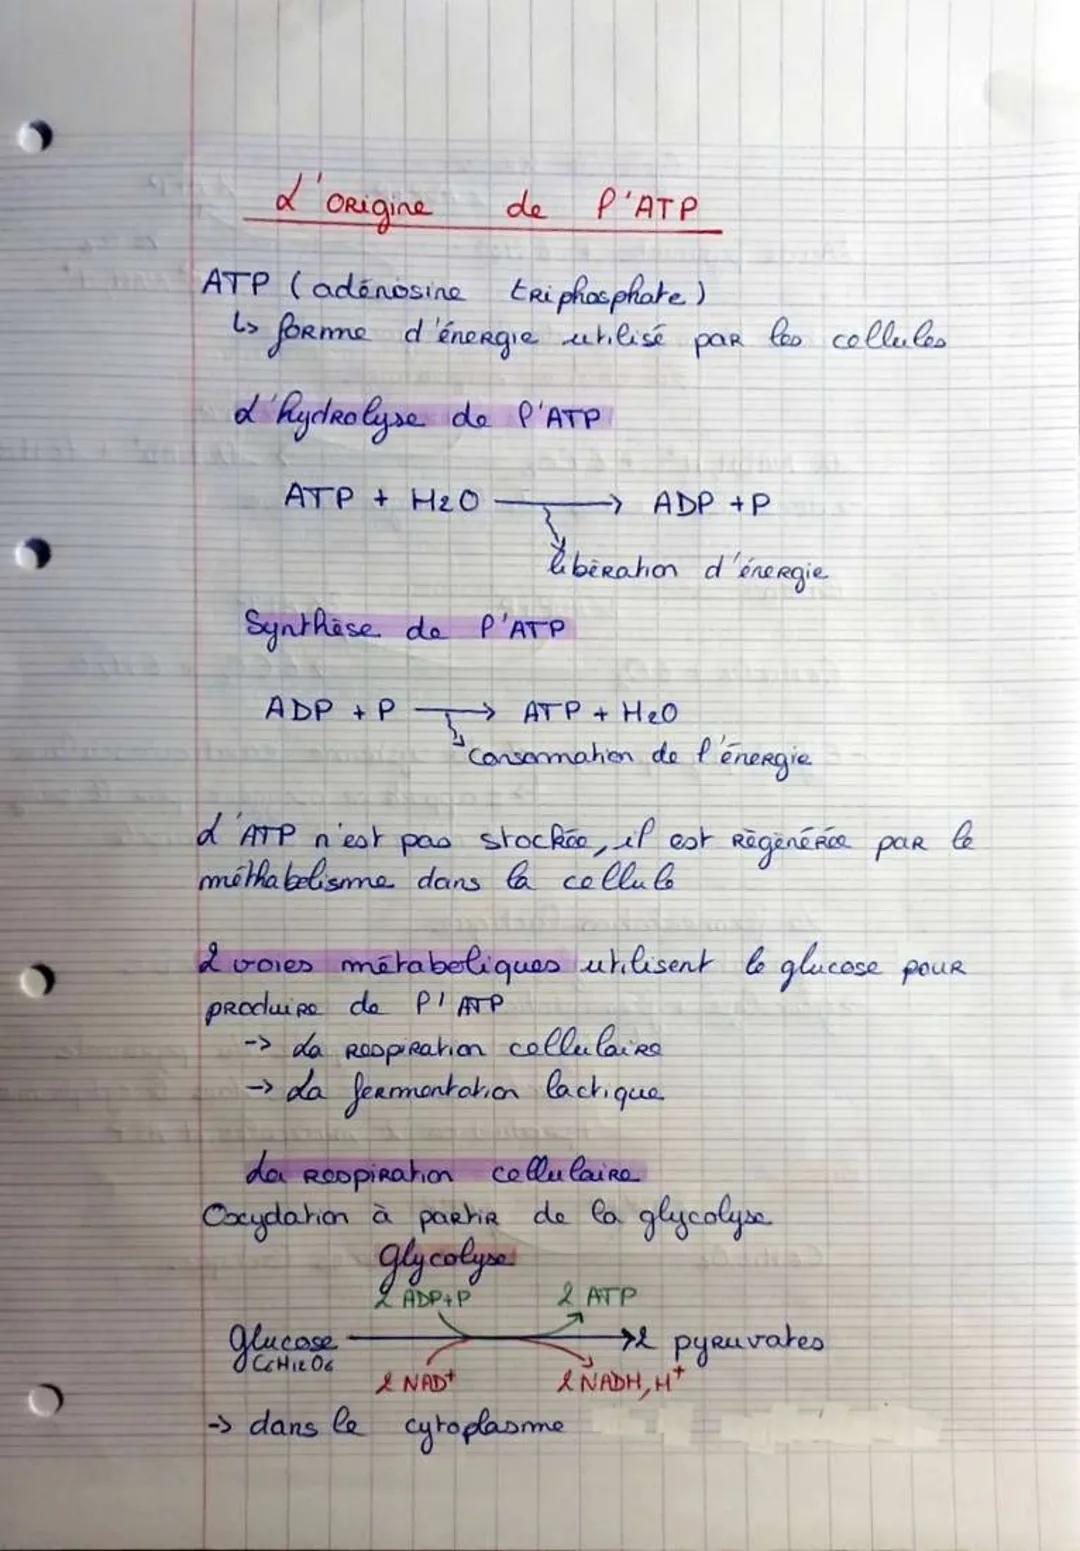 L'origine de l'ATP
ATP (adénosine triphosphate)
↳ forme d'énergie utilisé par les cellules
L'hydrolyse de l'ATP
ATP + H2O → ADP + P
libération d'énergie
Synthèse de l'ATP
ADP + P → ATP + H2O
consommation de l'énergie
L'ATP n'est pas stockée, il est régénérée par le
méthabolisme dans la cellule
2 voies métaboliques utilisent le glucose pour
produire de l'ATP
-> La respiration cellulaire
-> La fermentation lactique
La respiration cellulaire
Oxydation à partir de la glycolyse
Glycolyse
2 ADP+P 2 ATP
glucose → 2 pyruvates
C6H12O6
2 NAD+ 2 NADH, H+
-> dans le cytoplasme